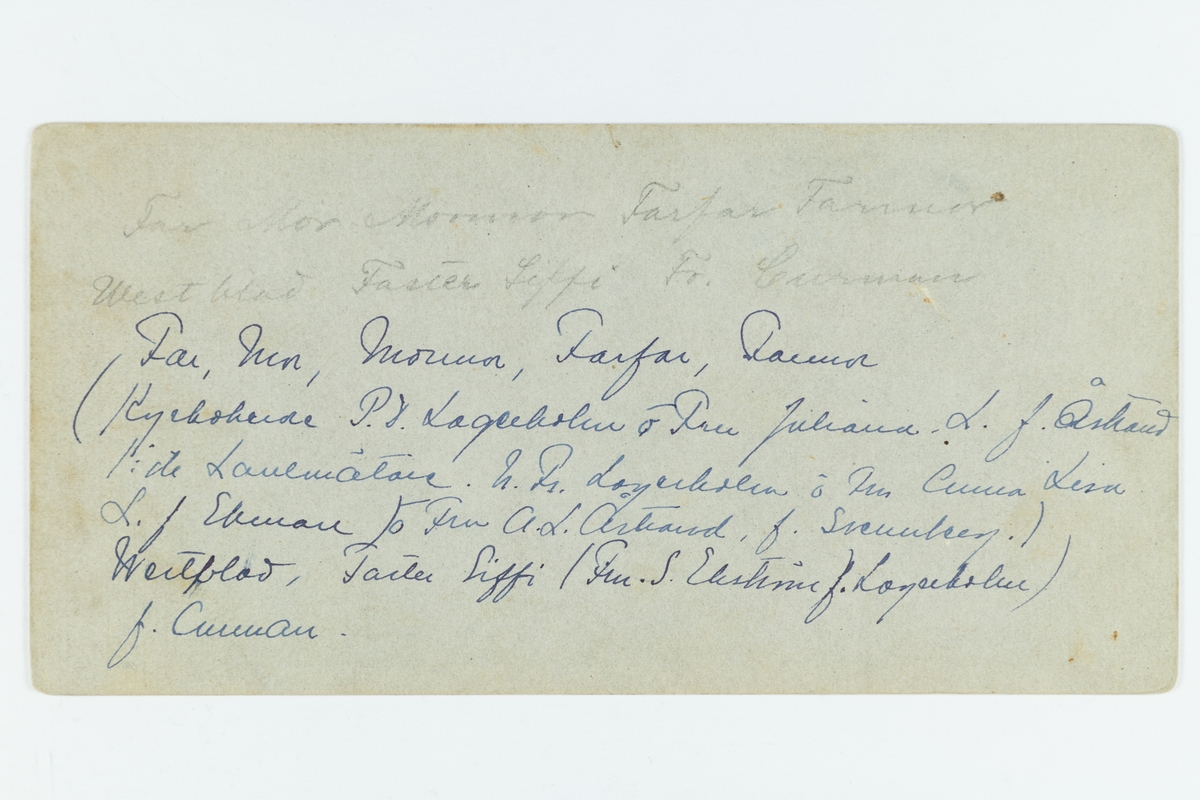 Far Mor Mormor Farfar Farmor
Westblad Faster Siffi Fr. Curman
Far, Mor, Mormor, Farfar, Farmor
(Kyrkoherde P.D. Lagerholm o Fru Juliana L. f. Åstrand
1:ste Lantmätare. N. Fr. Lagerholm o Fru Anna Lisa
L. f Ekman) o Fru A.L. Åstrand, f. Svennberg.)
Westblad, Faster Siffi (Fru. S. Ekström f. Lagerholm)
f. Curman.